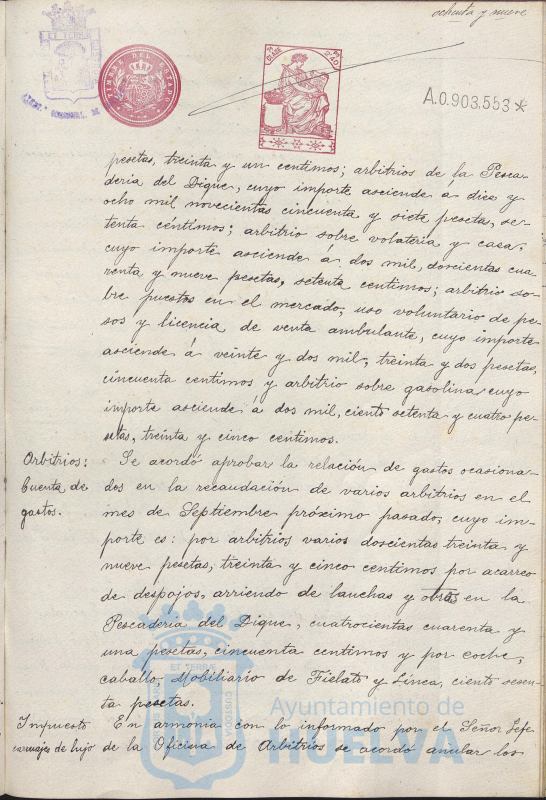 ochenta y nueve
ET TERRÆ
TIMBRE DEL ESTADO
CLASE
A.0.903.553*
pesetas, treinta y un centimos; arbitrios de la Pesca-
deria del Dique, cuyo importe asciende á diez y
ocho mil novecientas cincuenta y siete pesetas, se-
tenta céntimos; arbitrio sobre volateria y casa,
cuyo importe asciende á dos mil, doscientas cua-
renta y nueve pesetas, setenta centimos; arbitrio so-
bre puestos en el mercado, uso voluntario de pe-
sos y licencia de venta ambulante, cuyo importe
asciende á veinte y dos mil, treinta y dos pesetas,
cincuenta centimos y arbitrio sobre gasolina cuyo
importe asciende á dos mil, ciento setenta y cuatro pe-
setas, treinta y cinco centimos.
Arbitrios:
Cuenta de
gastos.
Se acordó aprobar la relación de gastos ocasiona-
dos en la recaudación de varios arbitrios en el
mes de Septiembre próximo pasado, cuyo im-
porte es: por arbitrios varios doscientas treinta y
nueve pesetas, treinta y cinco centimos por acarreo
de despojos, arriendo de lanchas y otros en la
Pescaderia del Dique, cuatrocientas cuarenta y
una pesetas, cincuenta centimos y por coche,
caballo, Mobiliario de Fielato y Linea, ciento sesen-
ta pesetas.
Impuesto
carruajes de lujo
En armonia con lo informado por el Señor Jefe
de la Oficina de Arbitrios se acordó anular los
ET TERRÆ
Ayuntamiento de
HUELVA